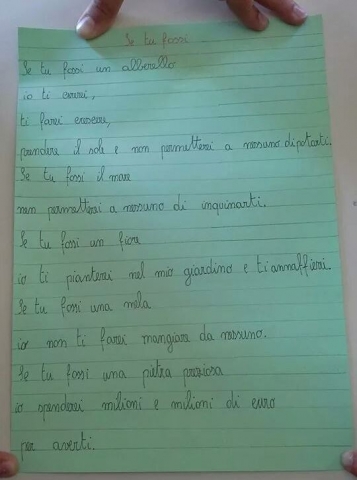 Se tu fossi
Se tu fossi un alberello
io ti curerei,
ti farei crescere,
prendere il sole e non permetterei a nessuno di potarti.
Se tu fossi il mare
non permetterei a nessuno di inquinarti.
Se tu fossi un fiore
io ti pianterei nel mio giardino e ti annaffierei.
Se tu fossi una mela
io non ti farei mangiare da nessuno.
Se tu fossi una pietra preziosa
io spenderei milioni e milioni di euro
per averti.